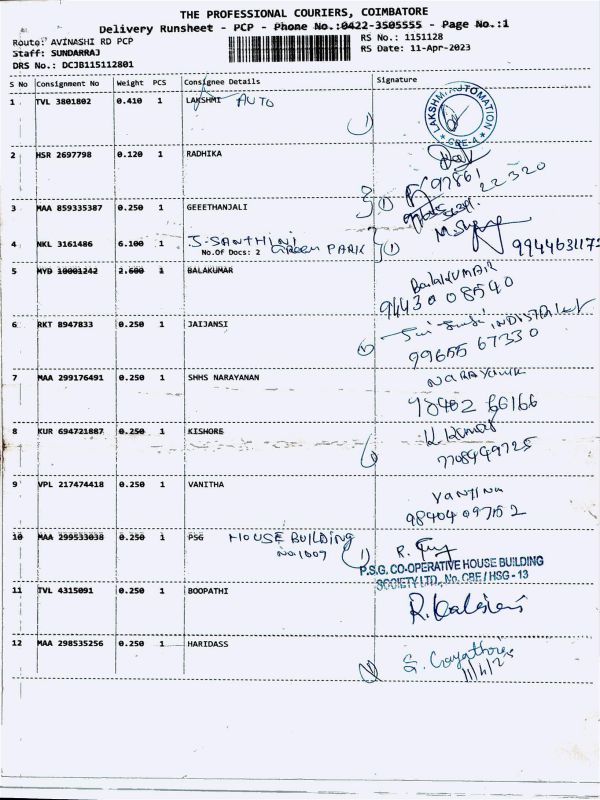 THE PROFESSIONAL COURIERS, COIMBATORE
Delivery Runsheet - PCP - Phone No.:0422-3505555 - Page No.:1
Route: AVINASHI RD PCP
RS No.: 1151128
Staff: SUNDARRAJ
RS Date: 11-Apr-2023
DRS No.: DCJB115112801
S No Consignment No Weight PCS Consignee Details Signature
1 TVL 3801802 0.410 1 LAKSHMI AUTO
LAKSHMI AUTOMATION
CBE-4
2 HSR 2697798 0.120 1 RADHIKA
97861 22320
3 MAA 859335387 0.250 1 GEEETHANJALI
4 NKL 3161486 6.100 1 J-SANTHINI
No.Of Docs: 2 GREEN PARK
5 MYD 10001242 2.600 1 BALAKUMAR
BalaKUMAR
94430 08540
6 RKT 8947833 0.250 1 JAIJANSI
99655 67330
7 MAA 299176491 0.250 1 SHHS NARAYANAN
98402 66166
8 KUR 694721887 0.250 1 KISHORE
K. Kumar
7708949725
9 VPL 217474418 0.250 1 VANITHA
98404 09752
10 MAA 299533038 0.250 1 PSG HOUSE BUILDING
NO 1007
P.S.G. CO-OPERATIVE HOUSE BUILDING
SOCIETY LTD., No. CBE / HSG - 13
11 TVL 4315091 0.250 1 BOOPATHI
12 MAA 298535256 0.250 1 HARIDASS